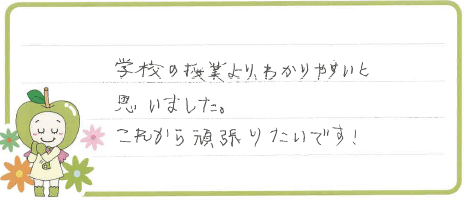 学校の授業より、わかりやすいと
思いました。
これから頑張りたいです!